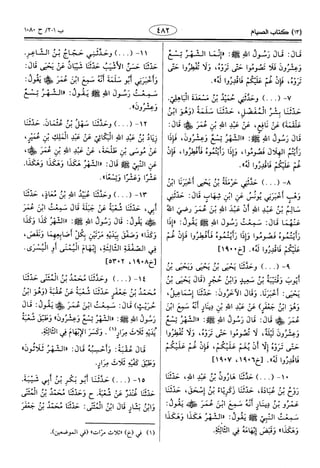 (١٣) كتاب الصيام
٤٨٣
ب ١٣/٢، ح ١٠٨٠
قَالَ: قَالَ رَسُولُ اللهِ ﷺ: «إِنَّمَا الشَّهْرُ تِسْعٌ
وَعِشْرُونَ، فَلَا تَصُومُوا حَتَّى تَرَوْهُ، وَلَا تُفْطِرُوا حَتَّى
تَرَوْهُ، فَإِنْ غُمَّ عَلَيْكُمْ فَاقْدِرُوا لَهُ».
٧- (...) وحَدَّثَنِي حُمَيْدُ بْنُ مَسْعَدَةَ الْبَاهِلِيُّ.
حَدَّثَنَا بِشْرُ الْمُفَضَّلِ، حَدَّثَنَا سَلَمَةُ (وَهُوَ ابْنُ
عَلْقَمَةَ) عَنْ نَافِعٍ، عَنْ عَبْدِ اللهِ بْنِ عُمَرَ ﷺ، قَالَ:
قَالَ رَسُولُ اللهِ ﷺ: «الشَّهْرُ تِسْعٌ وَعِشْرُونَ، فَإِذَا
رَأَيْتُمُ الْهِلَالَ فَصُومُوا، وَإِذَا رَأَيْتُمُوهُ فَأَفْطِرُوا، فَإِنْ
غُمَّ عَلَيْكُمْ فَاقْدِرُوا لَهُ».
٨- (...) حَدَّثَنِي حَرْمَلَةُ بْنُ يَحْيَى أَخْبَرَنَا ابْنُ
وَهْبٍ أَخْبَرَنِي يُونُسُ عَنِ ابْنِ شِهَابٍ قَالَ: حَدَّثَنِي
سَالِمُ بْنُ عَبْدِ اللهِ أَنَّ عَبْدَ اللهِ بْنَ عُمَرَ رَضِيَ اللهُ
عَنْهُمَا، قَالَ: سَمِعْتُ رَسُولَ اللهِ ﷺ يَقُولُ: «إِذَا
رَأَيْتُمُوهُ فَصُومُوا وَإِذَا رَأَيْتُمُوهُ فَأَفْطِرُوا فَإِنْ غُمَّ
عَلَيْكُمْ فَاقْدِرُوا لَهُ». [خ١٩٠٠]
٩- (...) حَدَّثَنَا يَحْيَى بْنُ يَحْيَى وَيَحْيَى بْنُ
أَيُّوبَ وَقُتَيْبَةُ بْنُ سَعِيدٍ وَابْنُ حُجْرٍ (قَالَ يَحْيَى بْنُ
يَحْيَى: أَخْبَرَنَا. وَقَالَ الْآخَرُونَ: حَدَّثَنَا إِسْمَاعِيلُ،
وَهُوَ ابْنُ جَعْفَرٍ) عَنْ عَبْدِ اللهِ بْنِ دِينَارٍ أَنَّهُ سَمِعَ ابْنَ
عُمَرَ ﷺ قَالَ: قَالَ رَسُولُ اللهِ ﷺ: «الشَّهْرُ تِسْعٌ
وَعِشْرُونَ لَيْلَةً، لَا تَصُومُوا حَتَّى تَرَوْهُ، وَلَا تُفْطِرُوا
حَتَّى تَرَوْهُ إِلَّا أَنْ يُغَمَّ عَلَيْكُمْ، فَإِنْ غُمَّ عَلَيْكُمْ
فَاقْدِرُوا لَهُ». [خ١٩٠٦، ١٩٠٧]
١٠- (...) حَدَّثَنَا هَارُونُ بْنُ عَبْدِ اللهِ، حَدَّثَنَا
رَوْحُ بْنُ عُبَادَةَ، حَدَّثَنَا زَكَرِيَّاءُ بْنُ إِسْحٰقَ، حَدَّثَنَا
عَمْرُو بْنُ دِينَارٍ أَنَّهُ سَمِعَ ابْنَ عُمَرَ ﷺ يَقُولُ:
سَمِعْتُ النَّبِيَّ ﷺ يَقُولُ: «الشَّهْرُ هٰكَذَا وَهٰكَذَا
وَهٰكَذَا» وَقَبَضَ إِبْهَامَهُ فِي الثَّالِثَةِ.
١١- (...) وحَدَّثَنِي حَجَّاجُ بْنُ الشَّاعِرِ.
حَدَّثَنَا حَسَنٌ الْأَشْيَبُ حَدَّثَنَا شَيْبَانُ عَنْ يَحْيَى قَالَ:
وَأَخْبَرَنِي أَبُو سَلَمَةَ أَنَّهُ سَمِعَ ابْنَ عُمَرَ ﷺ يَقُولُ:
سَمِعْتُ رَسُولَ اللهِ ﷺ يَقُولُ: «الشَّهْرُ تِسْعٌ
وَعِشْرُونَ».
١٢- (...) حَدَّثَنَا سَهْلُ بْنُ عُثْمَانَ. حَدَّثَنَا
زِيَادُ بْنُ عَبْدِ اللهِ الْبَكَّائِيُّ عَنْ عَبْدِ الْمَلِكِ بْنِ عُمَيْرٍ،
عَنْ مُوسَى بْنِ طَلْحَةَ، عَنْ عَبْدِ اللهِ بْنِ عُمَرَ ﷺ،
عَنِ النَّبِيِّ ﷺ قَالَ: «الشَّهْرُ هٰكَذَا وَهٰكَذَا وَهٰكَذَا،
عَشْرًا وَعَشْرًا وَتِسْعًا».
١٣- (...) حَدَّثَنَا عُبَيْدُ اللهِ بْنُ مُعَاذٍ، حَدَّثَنَا
أَبِي، حَدَّثَنَا شُعْبَةُ عَنْ جَبَلَةَ قَالَ سَمِعْتُ ابْنَ عُمَرَ
ﷺ يَقُولُ: قَالَ رَسُولُ اللهِ ﷺ: «الشَّهْرُ كَذَا وَكَذَا
وَكَذَا» وَصَفَّقَ بِيَدَيْهِ مَرَّتَيْنِ بِكُلِّ أَصَابِعِهِمَا وَنَقَصَ،
فِي الصَّفْقَةِ الثَّالِثَةِ، إِبْهَامَ الْيُمْنَى أَوِ الْيُسْرَى.
[خ١٩٠٨، ٥٣٠٢]
١٤- (...) حَدَّثَنَا مُحَمَّدُ بْنُ الْمُثَنَّى حَدَّثَنَا
مُحَمَّدُ بْنُ جَعْفَرٍ حَدَّثَنَا شُعْبَةُ عَنْ عُقْبَةَ (وَهُوَ ابْنُ
حُرَيْثٍ) قَالَ: سَمِعْتُ ابْنَ عُمَرَ ﷺ يَقُولُ: قَالَ
رَسُولُ اللهِ ﷺ: «الشَّهْرُ تِسْعٌ وَعِشْرُونَ» وَطَبَّقَ شُعْبَةُ
يَدَيْهِ ثَلَاثَ مِرَارٍ(١)، وَكَسَرَ الْإِبْهَامَ فِي الثَّالِثَةِ.
قَالَ عُقْبَةُ: وَأَحْسِبُهُ قَالَ: «الشَّهْرُ ثَلَاثُونَ»
وَطَبَّقَ كَفَّيْهِ ثَلَاثَ مِرَارٍ.
١٥- (...) حَدَّثَنَا أَبُو بَكْرِ بْنُ أَبِي شَيْبَةَ.
حَدَّثَنَا غُنْدَرٌ عَنْ شُعْبَةَ. ح وَحَدَّثَنَا مُحَمَّدُ بْنُ الْمُثَنَّى
وَابْنُ بَشَّارٍ قَالَ ابْنُ الْمُثَنَّى: حَدَّثَنَا مُحَمَّدُ بْنُ جَعْفَرٍ
(١) في (خ) «ثلاث مرات» (في الموضعين).